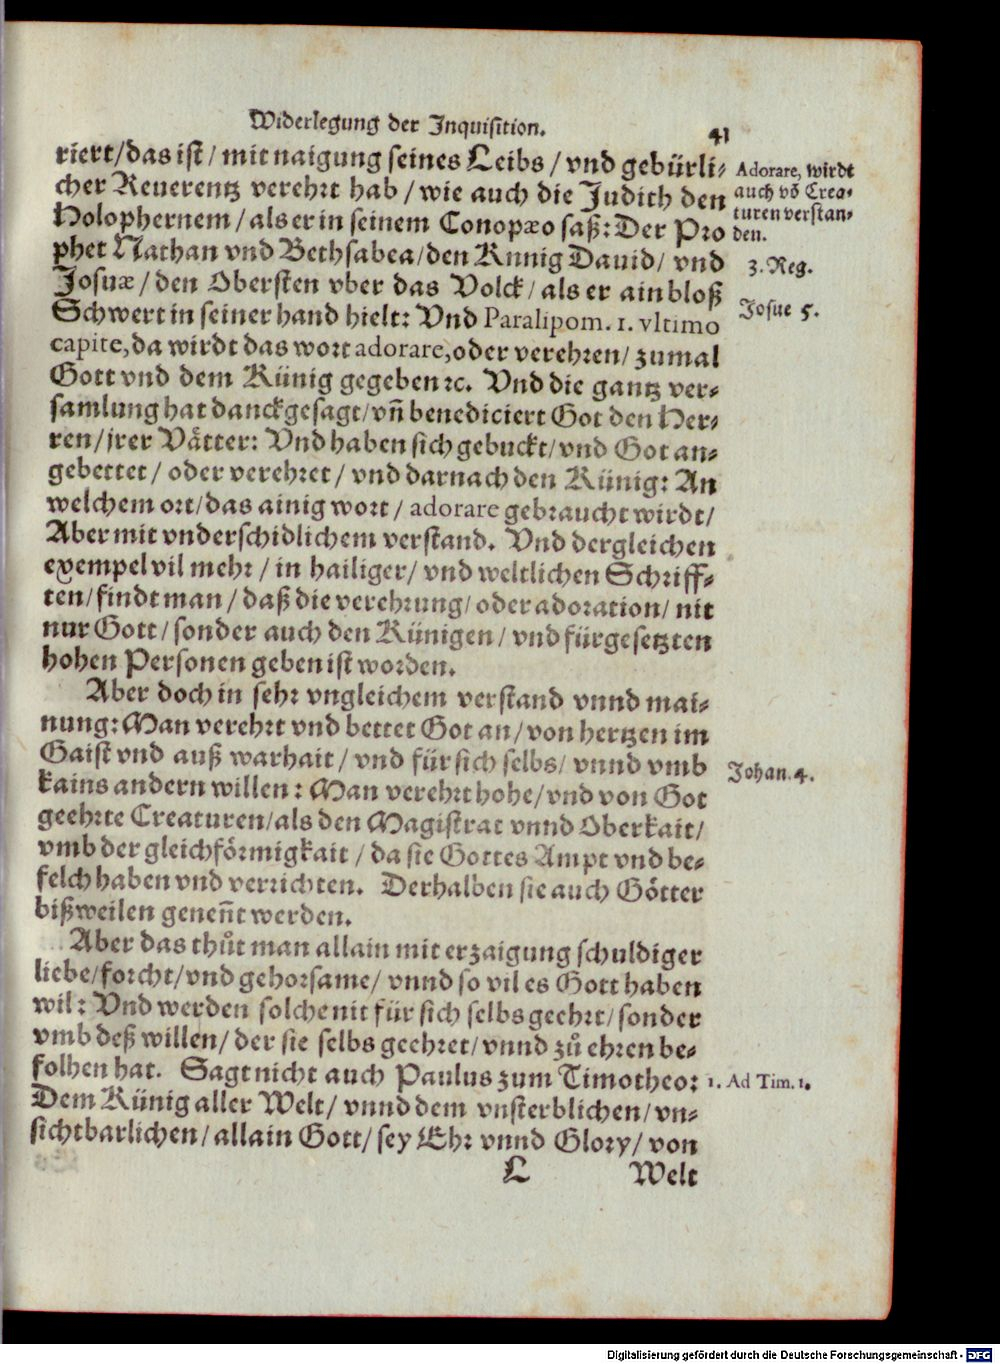 Widerlegung der Inquisition.
41
riert/das ist/ mit naigung seines Leibs / vnd gebürli-
cher Reuerentz verehrt hab / wie auch die Judith den
Holophernem / als er in seinem Conopæo saß: Der Pro
phet Nathan vnd Bethsabea/den Kunig Dauid/ vnd
Josuæ / den Obersten vber das Volck / als er ain bloß
Schwert in seiner hand hielt: Vnd Paralipom. 1. vltimo
capite, da wirdt das wort adorare, oder verehren/ zumal
Gott vnd dem Künig gegeben ꝛc. Vnd die gantz ver-
samlung hat danckgesagt/vñ benediciert Got den Her-
ren/jrer Vätter: Vnd haben sich gebuckt/vnd Got an-
gebettet / oder verehret / vnd darnach den Künig: An
welchem ort/das ainig wort / adorare gebraucht wirdt/
Aber mit vnderschidlichem verstand. Vnd dergleichen
exempel vil mehr / in hailiger/ vnd weltlichen Schriff-
ten/findt man / daß die verehrung/ oder adoration/ nit
nur Gott / sonder auch den Künigen / vnd fürgesetzten
hohen Personen geben ist worden.
Aber doch in sehr vngleichem verstand vnnd mai-
nung: Man verehrt vnd bettet Got an/ von hertzen im
Gaist vnd auß warhait / vnd für sich selbs/ vnnd vmb
kains andern willen: Man verehrt hohe/vnd von Got
geehrte Creaturen/als den Magistrat vnnd Oberkait/
vmb der gleichförmigkait / da sie Gottes Ampt vnd be-
felch haben vnd verrichten. Derhalben sie auch Götter
bißweilen geneñt werden.
Aber das thůt man allain mit erzaigung schuldiger
liebe/forcht/vnd gehorsame/ vnnd so vil es Gott haben
wil: Vnd werden solche nit für sich selbs geehrt/ sonder
vmb deß willen/ der sie selbs geehret/vnnd zů ehren be-
folhen hat. Sagt nicht auch Paulus zum Timotheo:
Dem Künig aller Welt/ vnnd dem vnsterblichen/vn-
sichtbarlichen/allain Gott/ sey Ehr vnnd Glory/ von
L
Welt
Adorare, wirdt
auch võ Crea-
turen verstan-
den.
3. Reg.
Josue 5.
Johan. 4.
1. Ad Tim. 1.
Digitalisierung gefördert durch die Deutsche Forschungsgemeinschaft - DFG